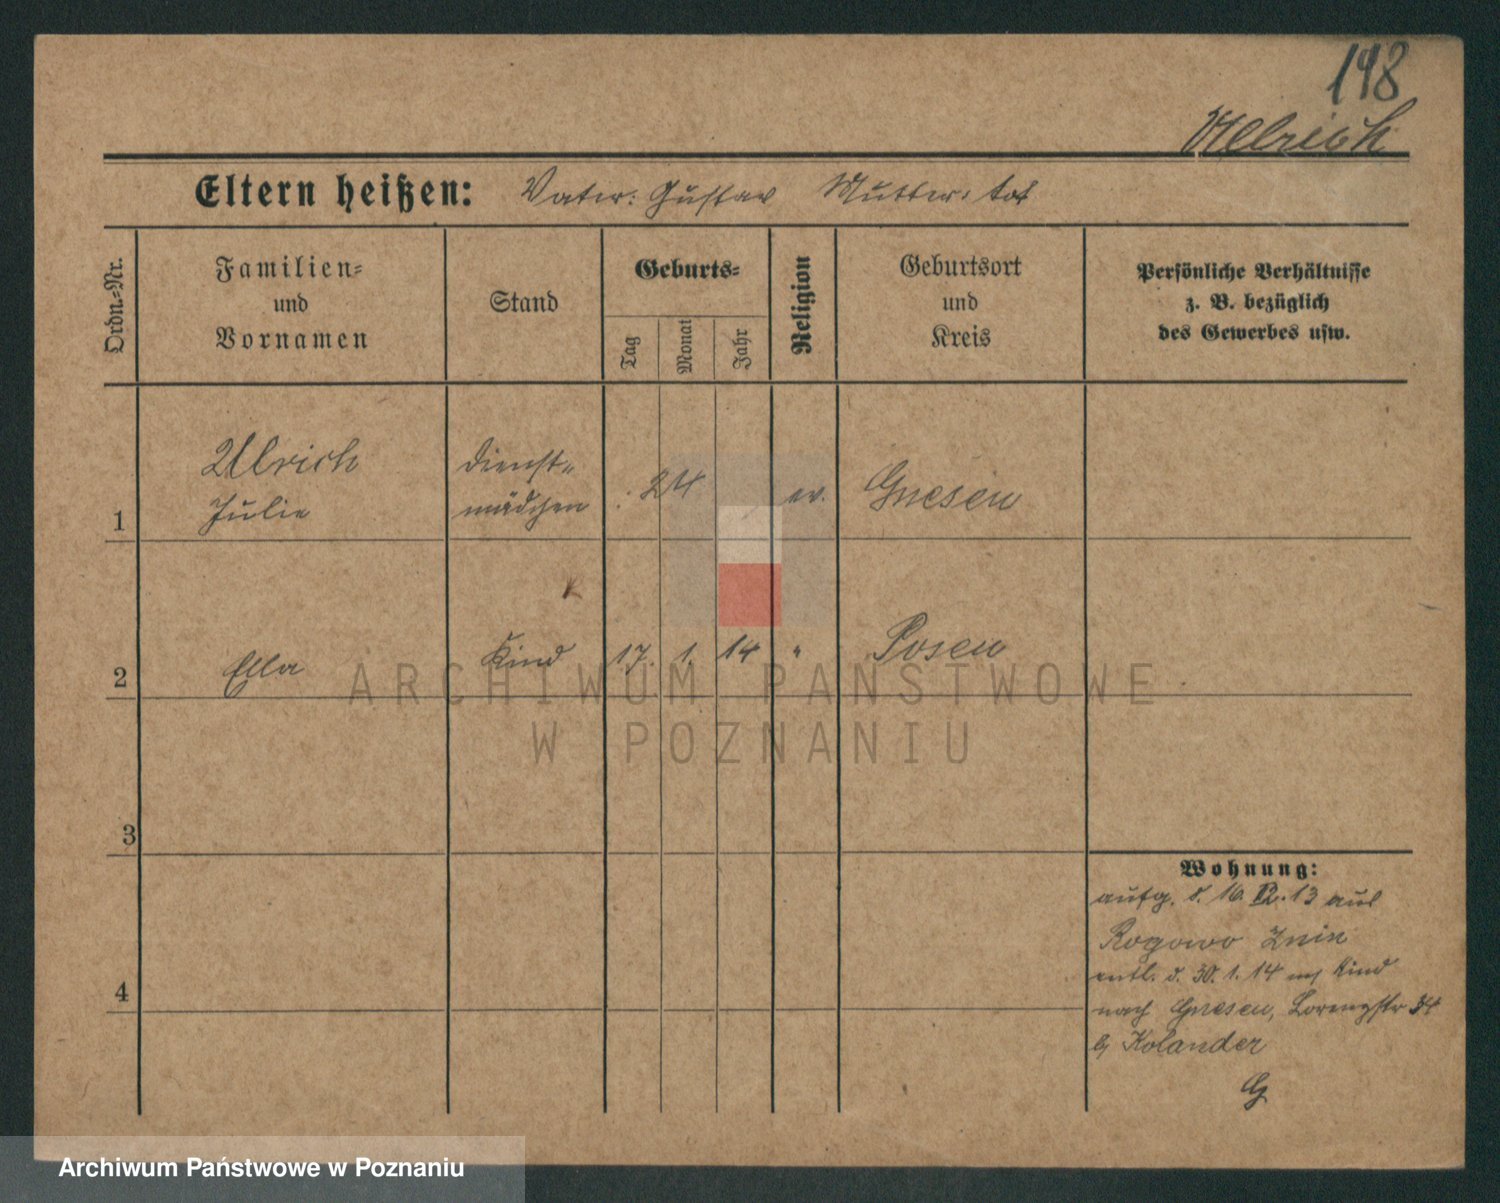 198
Ullrich
Eltern heißen: Vater: Gustav Mutter: tot
Ordn=Nr.
Familien=
und
Vornamen
Stand
Geburts=
Tag
Monat
Jahr
Religion
Geburtsort
und
Kreis
Persönliche Verhältnisse
z. B. bezüglich
des Gewerbes usw.
1
Ulrich
Julie
Dienst=
mädchen
24
ev.
Gnesen
2
Ella
Kind
17. 1. 14
"
Posen
3
4
Wohnung:
aufg. d. 16. 12. 13 aus
Rogowo Znin
entl. d. 30. 1. 14 m/ Kind
nach Gnesen, Lorenzstr 34
b/ Kolander
G
ARCHIWUM PAŃSTWOWE
W POZNANIU
Archiwum Państwowe w Poznaniu